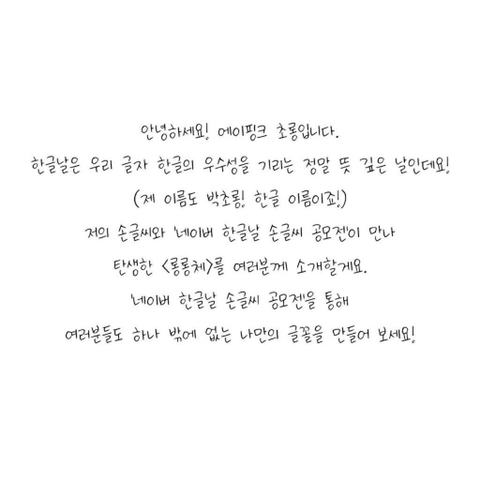 안녕하세요! 에이핑크 초롱입니다.
한글날은 우리 글자 한글의 우수성을 기리는 정말 뜻 깊은 날인데요!
(제 이름도 박초롱! 한글 이름이죠!)
저의 손글씨와 '네이버 한글날 손글씨 공모전'이 만나
탄생한 <롱롱체>를 여러분께 소개할게요.
'네이버 한글날 손글씨 공모전'을 통해
여러분들도 하나 밖에 없는 나만의 글꼴을 만들어 보세요!